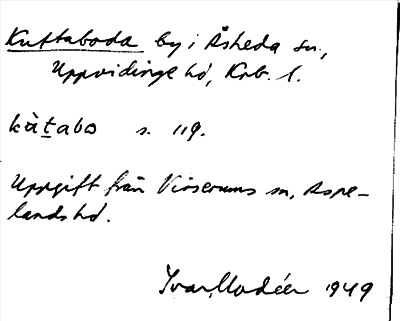 Kuttaboda by i Åsheda sn.,
Uppvidinge hd, Krb. l.
kàt̠abo s. 119.
Uppgift från Virserums sn, Aspe-
lands hd.
Ivar Modéer 1949